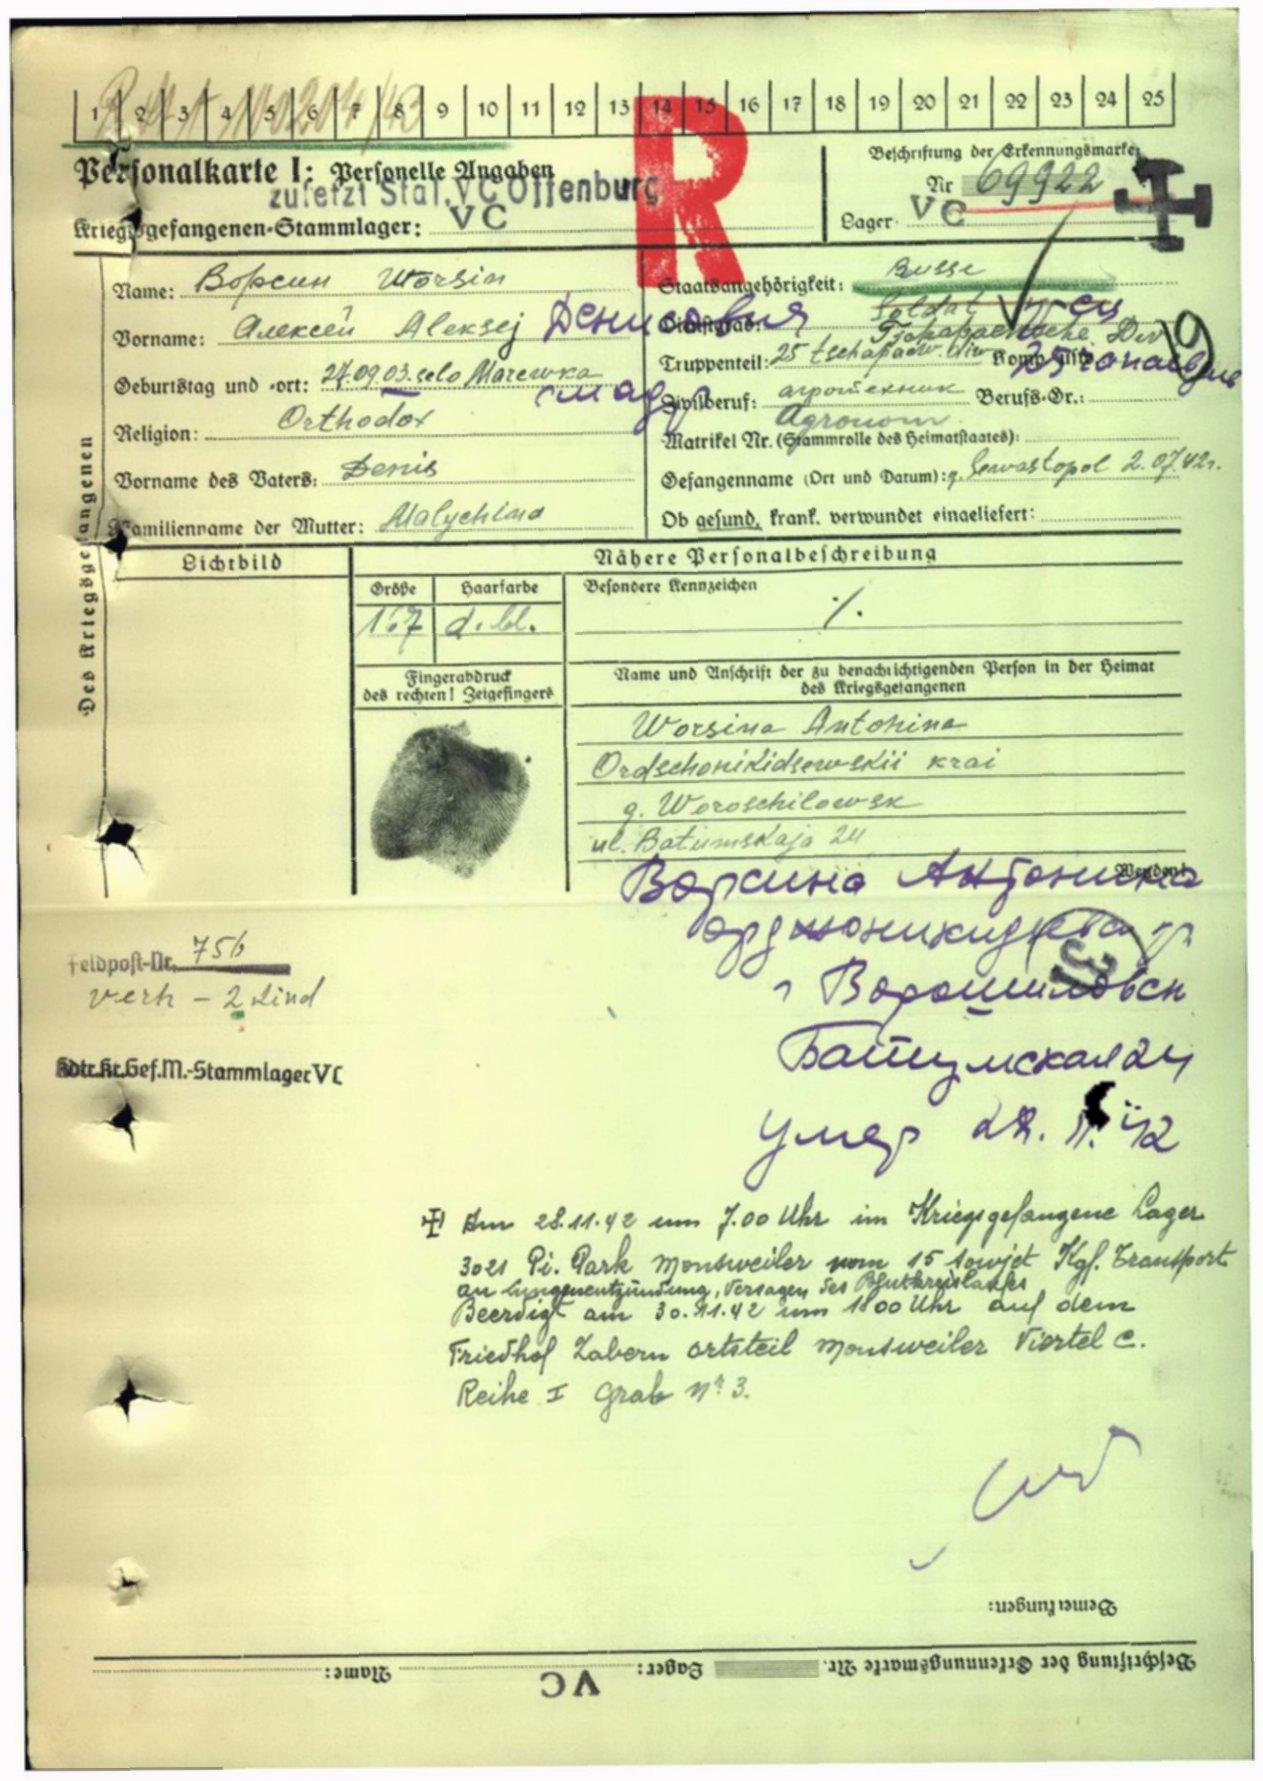 1 2 3 4 5 6 7 8 9 10 11 12 13 14 15 16 17 18 19 20 21 22 23 24 25
Personalkarte I: Personelle Angaben
zuletzt Stal. VC Offenburg
Kriegsgefangenen-Stammlager: VC
Beschriftung der Erkennungsmarke
Nr 69922
Lager: VC
R
Des Kriegsgefangenen
Name: Ворсин Worsin
Vorname: Алексей Aleksej Денисович
Geburtstag und -ort: 27.09.03. selo Marewka
Religion: Orthodox
Vorname des Vaters: Denis
Familienname der Mutter: Malychina
Staatsangehörigkeit: Russe
Dienstgrad: Soldat
Truppenteil: 25 tschapaew. div Komp. usw.
Zivilberuf: агротехник Berufs-Gr.:
Agronom
Matrikel Nr. (Stammrolle des Heimatstaates):
Gefangenname (Ort und Datum): g. Sewastopol 2.07.42г.
Ob gesund, krank, verwundet eingeliefert:
Lichtbild
Nähere Personalbeschreibung
Größe Haarfarbe Besondere Kennzeichen
167 d. bl. ./.
Fingerabdruck
des rechten! Zeigefingers
Name und Anschrift der zu benachrichtigenden Person in der Heimat
des Kriegsgefangenen
Worsina Antonina
Ordschonikidsewskii krai
g. Woroschilowsk
ul. Batumskaja 24
Wenden!
Ворсина Антонина
г Ворошиловск
Батумская 24
умер 28. 11. 42
Feldpost-Nr. 756
verh - 2 Kind
Kdtr. Kr. Gef. M.-Stammlager VC
Am 28.11.42 um 7.00 Uhr im Kriegsgefangene Lager
3021 Pi. Park Monsweiler vom 15 sowjet Kgf. Transport
an Lungenentzündung, Versagen des Blutkreislaufes
Beerdigt am 30.11.42 um 1800 Uhr auf dem
Friedhof Zabern ortsteil Monsweiler Viertel C.
Reihe I Grab nr 3.
Bemerkungen:
Beschriftung der Erkennungsmarke Nr. Lager: VC Name: